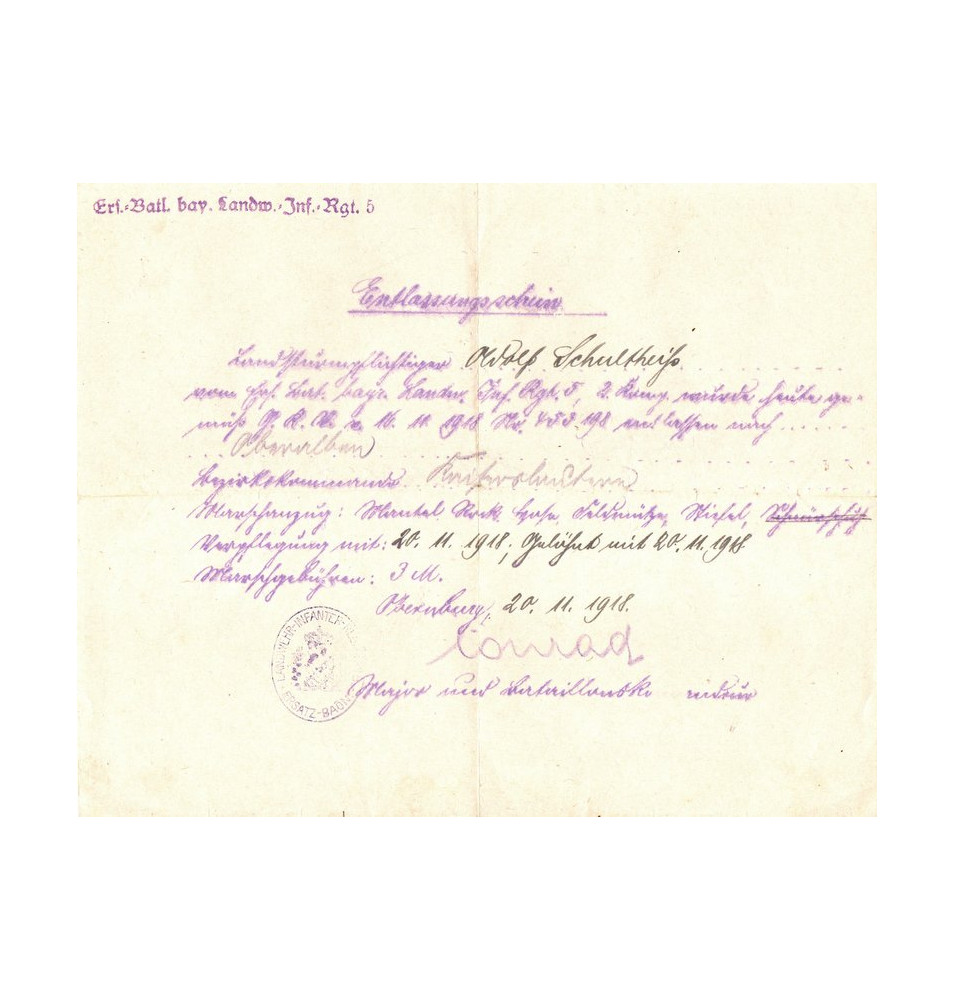 Ers.-Batl. bay. Landw.-Inf.-Rgt. 5
Entlassungsschein
Landsturmpflichtiger Adolf Schultheiß
vom Ers. Bat. bayr. Landw. Inf. Rgt. 5, 2. Komp. wurde heute ge-
mäß v. 16. 11. 1918 No. entlassen nach
Oberalben
Bezirkskommando Kaiserslautern
Marschanzug: Mantel Rock, Hose, Feldmütze, Stiefel, Schnürschuh
Verpflegung mit: 20. 11. 1918; Gelöhnt mit 20. 11. 1918
Marschgebühren: 3 M.
Obernburg, 20. 11. 1918.
Conrad
LANDWEHR-INFANTER-
ERSATZ-BAON
Major und Bataillonsko mdeur